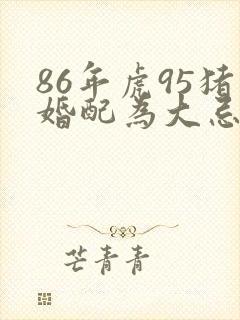 86年虎95猪
婚配为大忌
芒青青